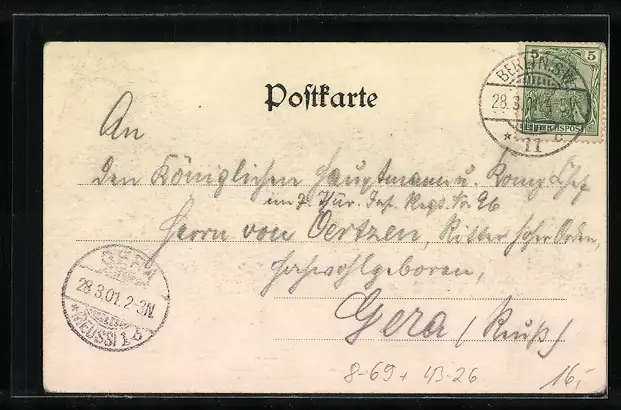 Postkarte
5 5
REICHSPOST
BERLIN SW
28.3.01
* 11
An
den Königlichen Hauptmann u. Komp. Chef
im 7. Thür. Inf. Regt. Nr. 96
Herrn von Oertzen, Ritter hoher Orden,
hochwohlgeboren,
Gera (Reuß)
GERA
28.3.01. 2-3N.
* (REUSS) 1 b
8-69 + 43-26
16,-